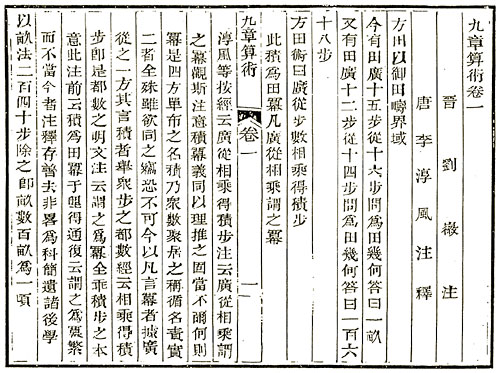 九章算術卷一
晉劉徽注
唐李淳風注釋
方田以御田疇界域
今有田廣十五步從十六步問為田幾何答曰一畝
又有田廣十二步從十四步問為田幾何答曰一百六
十八步
方田術曰廣從步數相乘得積步
此積為田冪凡廣從相乘謂之冪
九章算術 卷一 一
淳風等按經云廣從相乘得積步注云廣從相乘謂
之冪觀斯注意積冪義同以理推之固當不爾何則
冪是四方單布之名積乃眾數聚居之稱循名責實
二者全殊雖欲同之竊恐不可今以凡言冪者據廣
從之一方其言積者舉眾步之都數經云相乘得積
步即是都數之明文注云謂之為冪全乖積步之本
意此注前云積為田冪于理得通復云謂之為冪繁
而不當今者注釋存善去非畧為科簡遺諸後學
以畝法二百四十步除之即畝數百畝為一頃